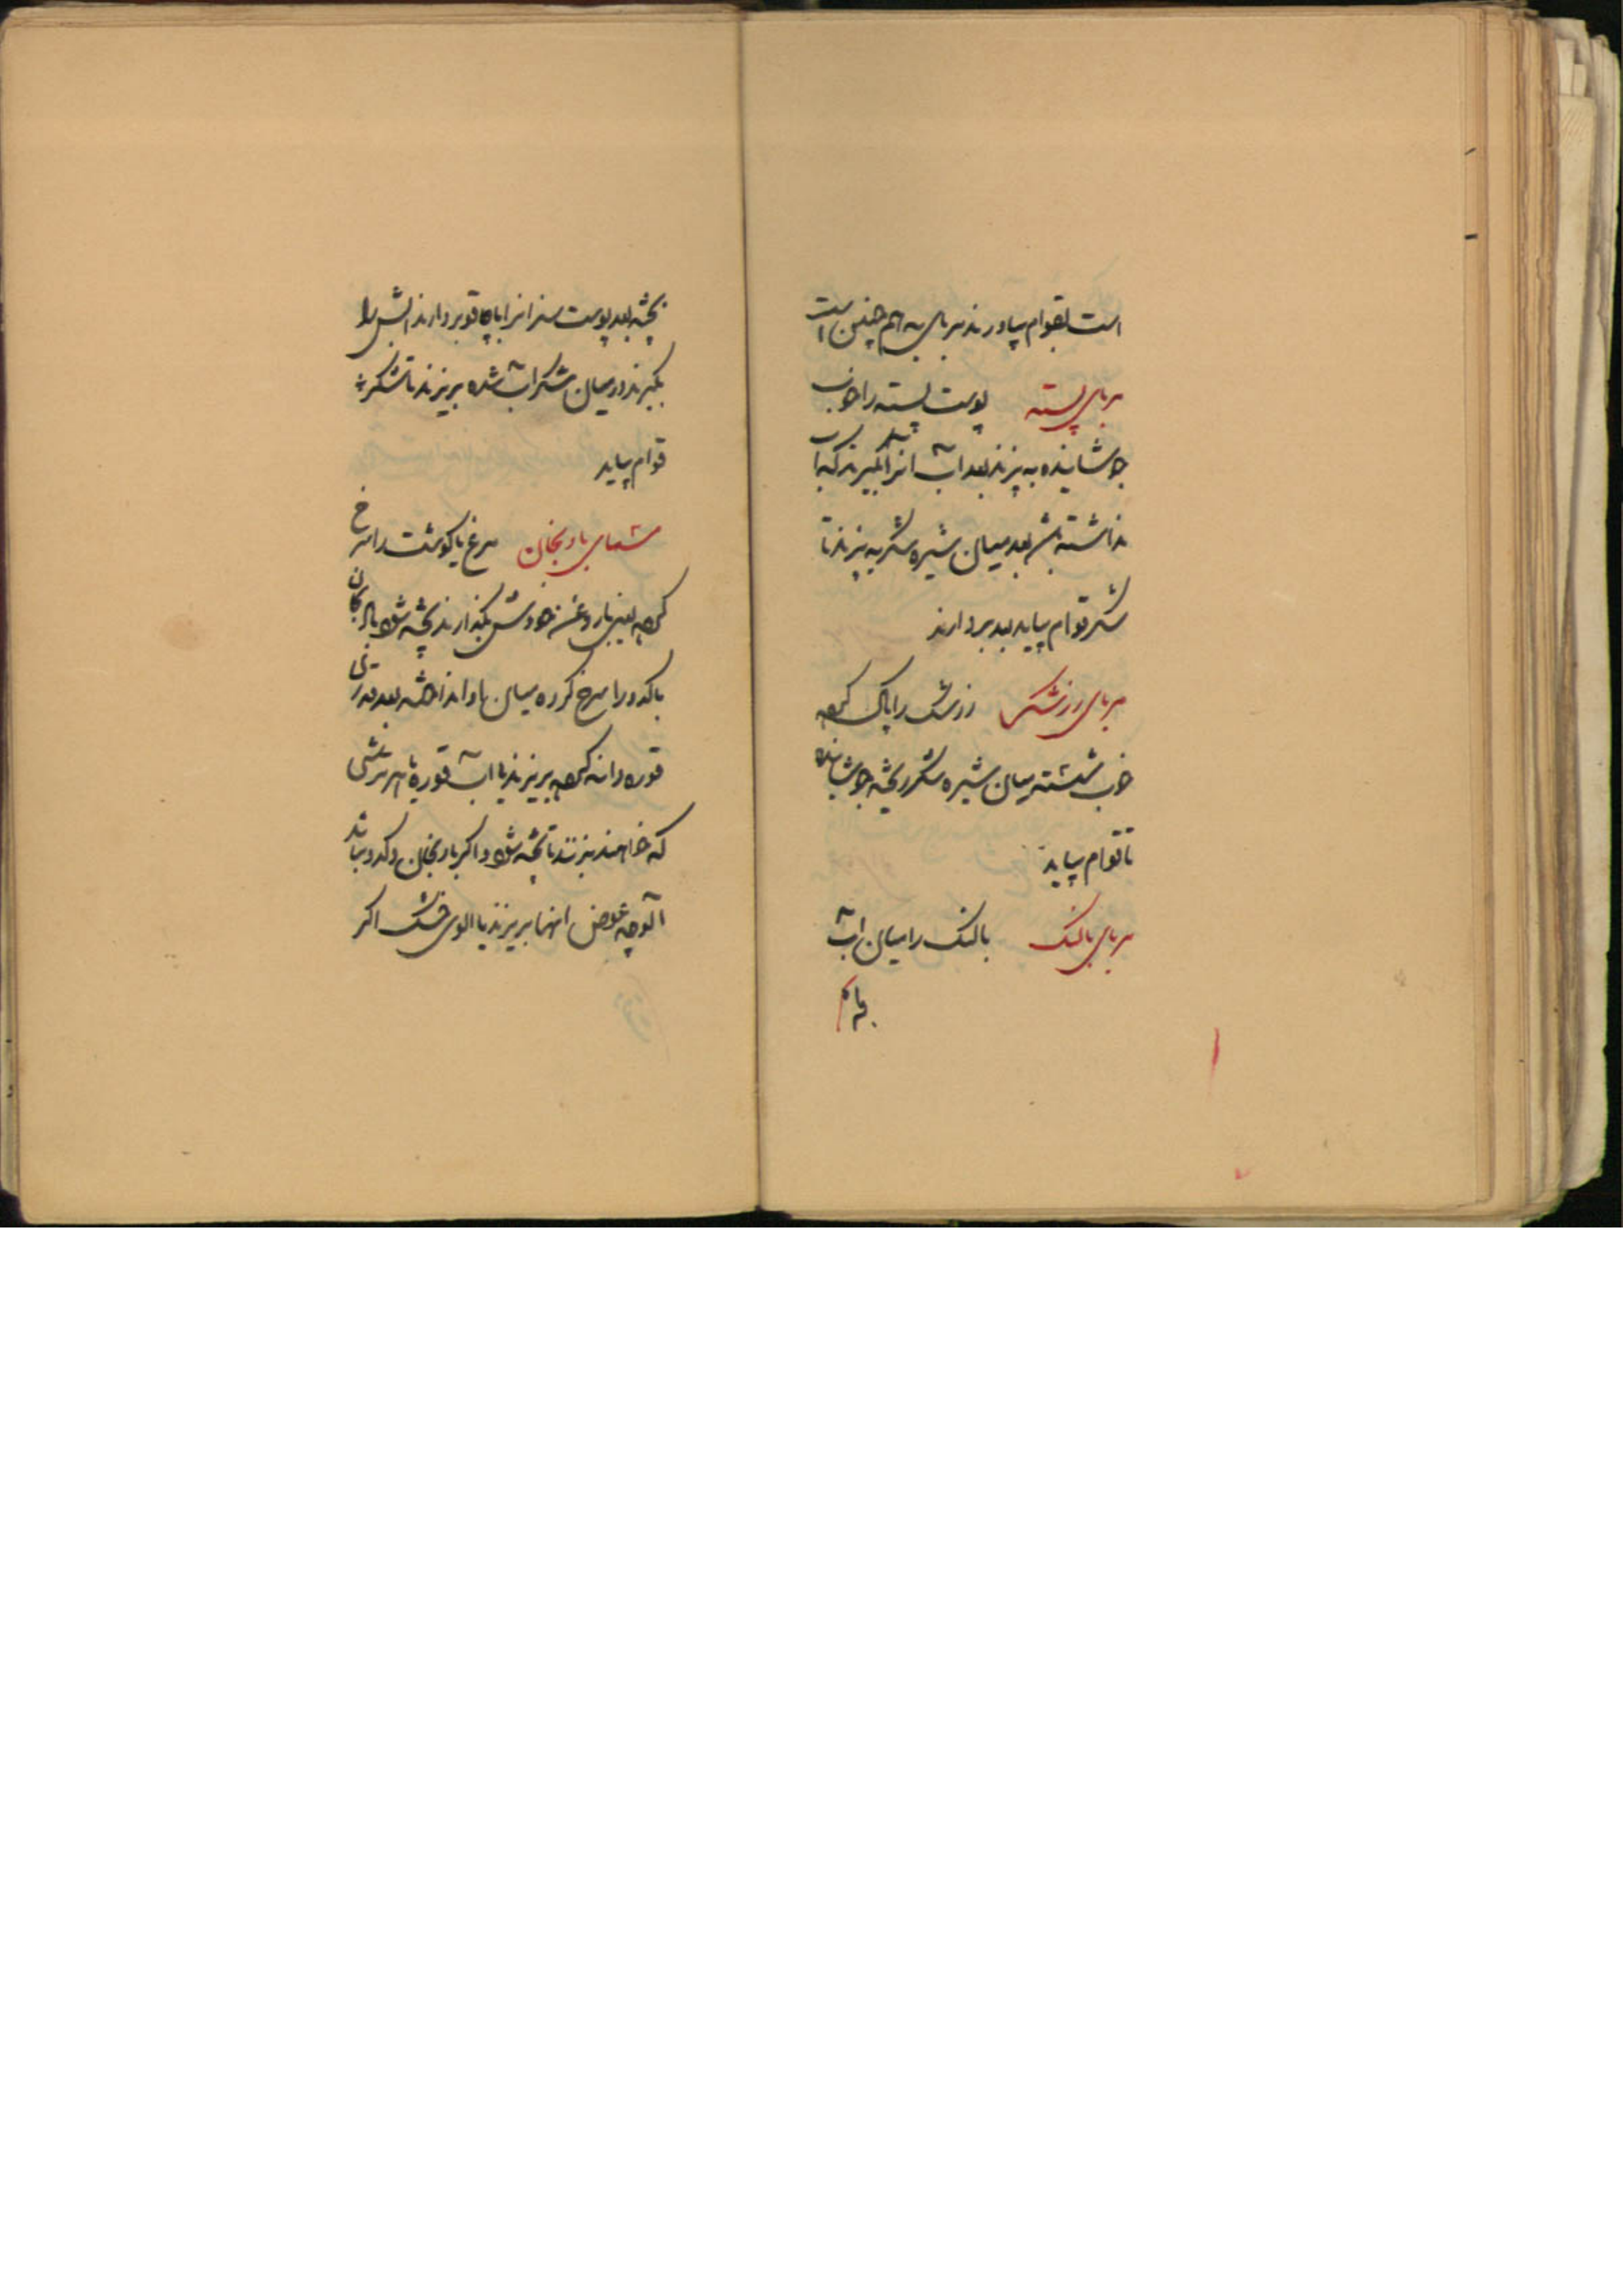 است بقوام بیاورند مربای به هم چنین است
مربای پسته پوست پسته را خوب
جوشانیده به پزند بعد آب انرا بگیرند که آب
نداشته باشد بعد میان شیره شکر به پزند تا
شکر قوام بیاید بعد بردارند
مربای زرشک زرشک را پاک کرده
خوب شسته میان شیره شکر ریخته جوشانیده
تا قوام بیاید
مربای بالنگ بالنگ را میان آب
پخته بعد پوست سبز انرا با چاقو بردارند آبش را
بگیرند در میان شکر آب شده بریزند تا شکرش
قوام بیاید
مسمای بادنجان مرغ یا گوشت را سرخ
کرده با روغن خودش بگذارند پخته شود بادنجان
یا کدو را سرخ کرده میان او انداخته بعد قدری
قوره دانه کرده بریزند یا آب قوره یا هر ترشی
که خواهند بزنند تا پخته شود و اگر بادنجان و کدو نباشد
آلوچه عوض انها بریزند یا الوی خشک اگر